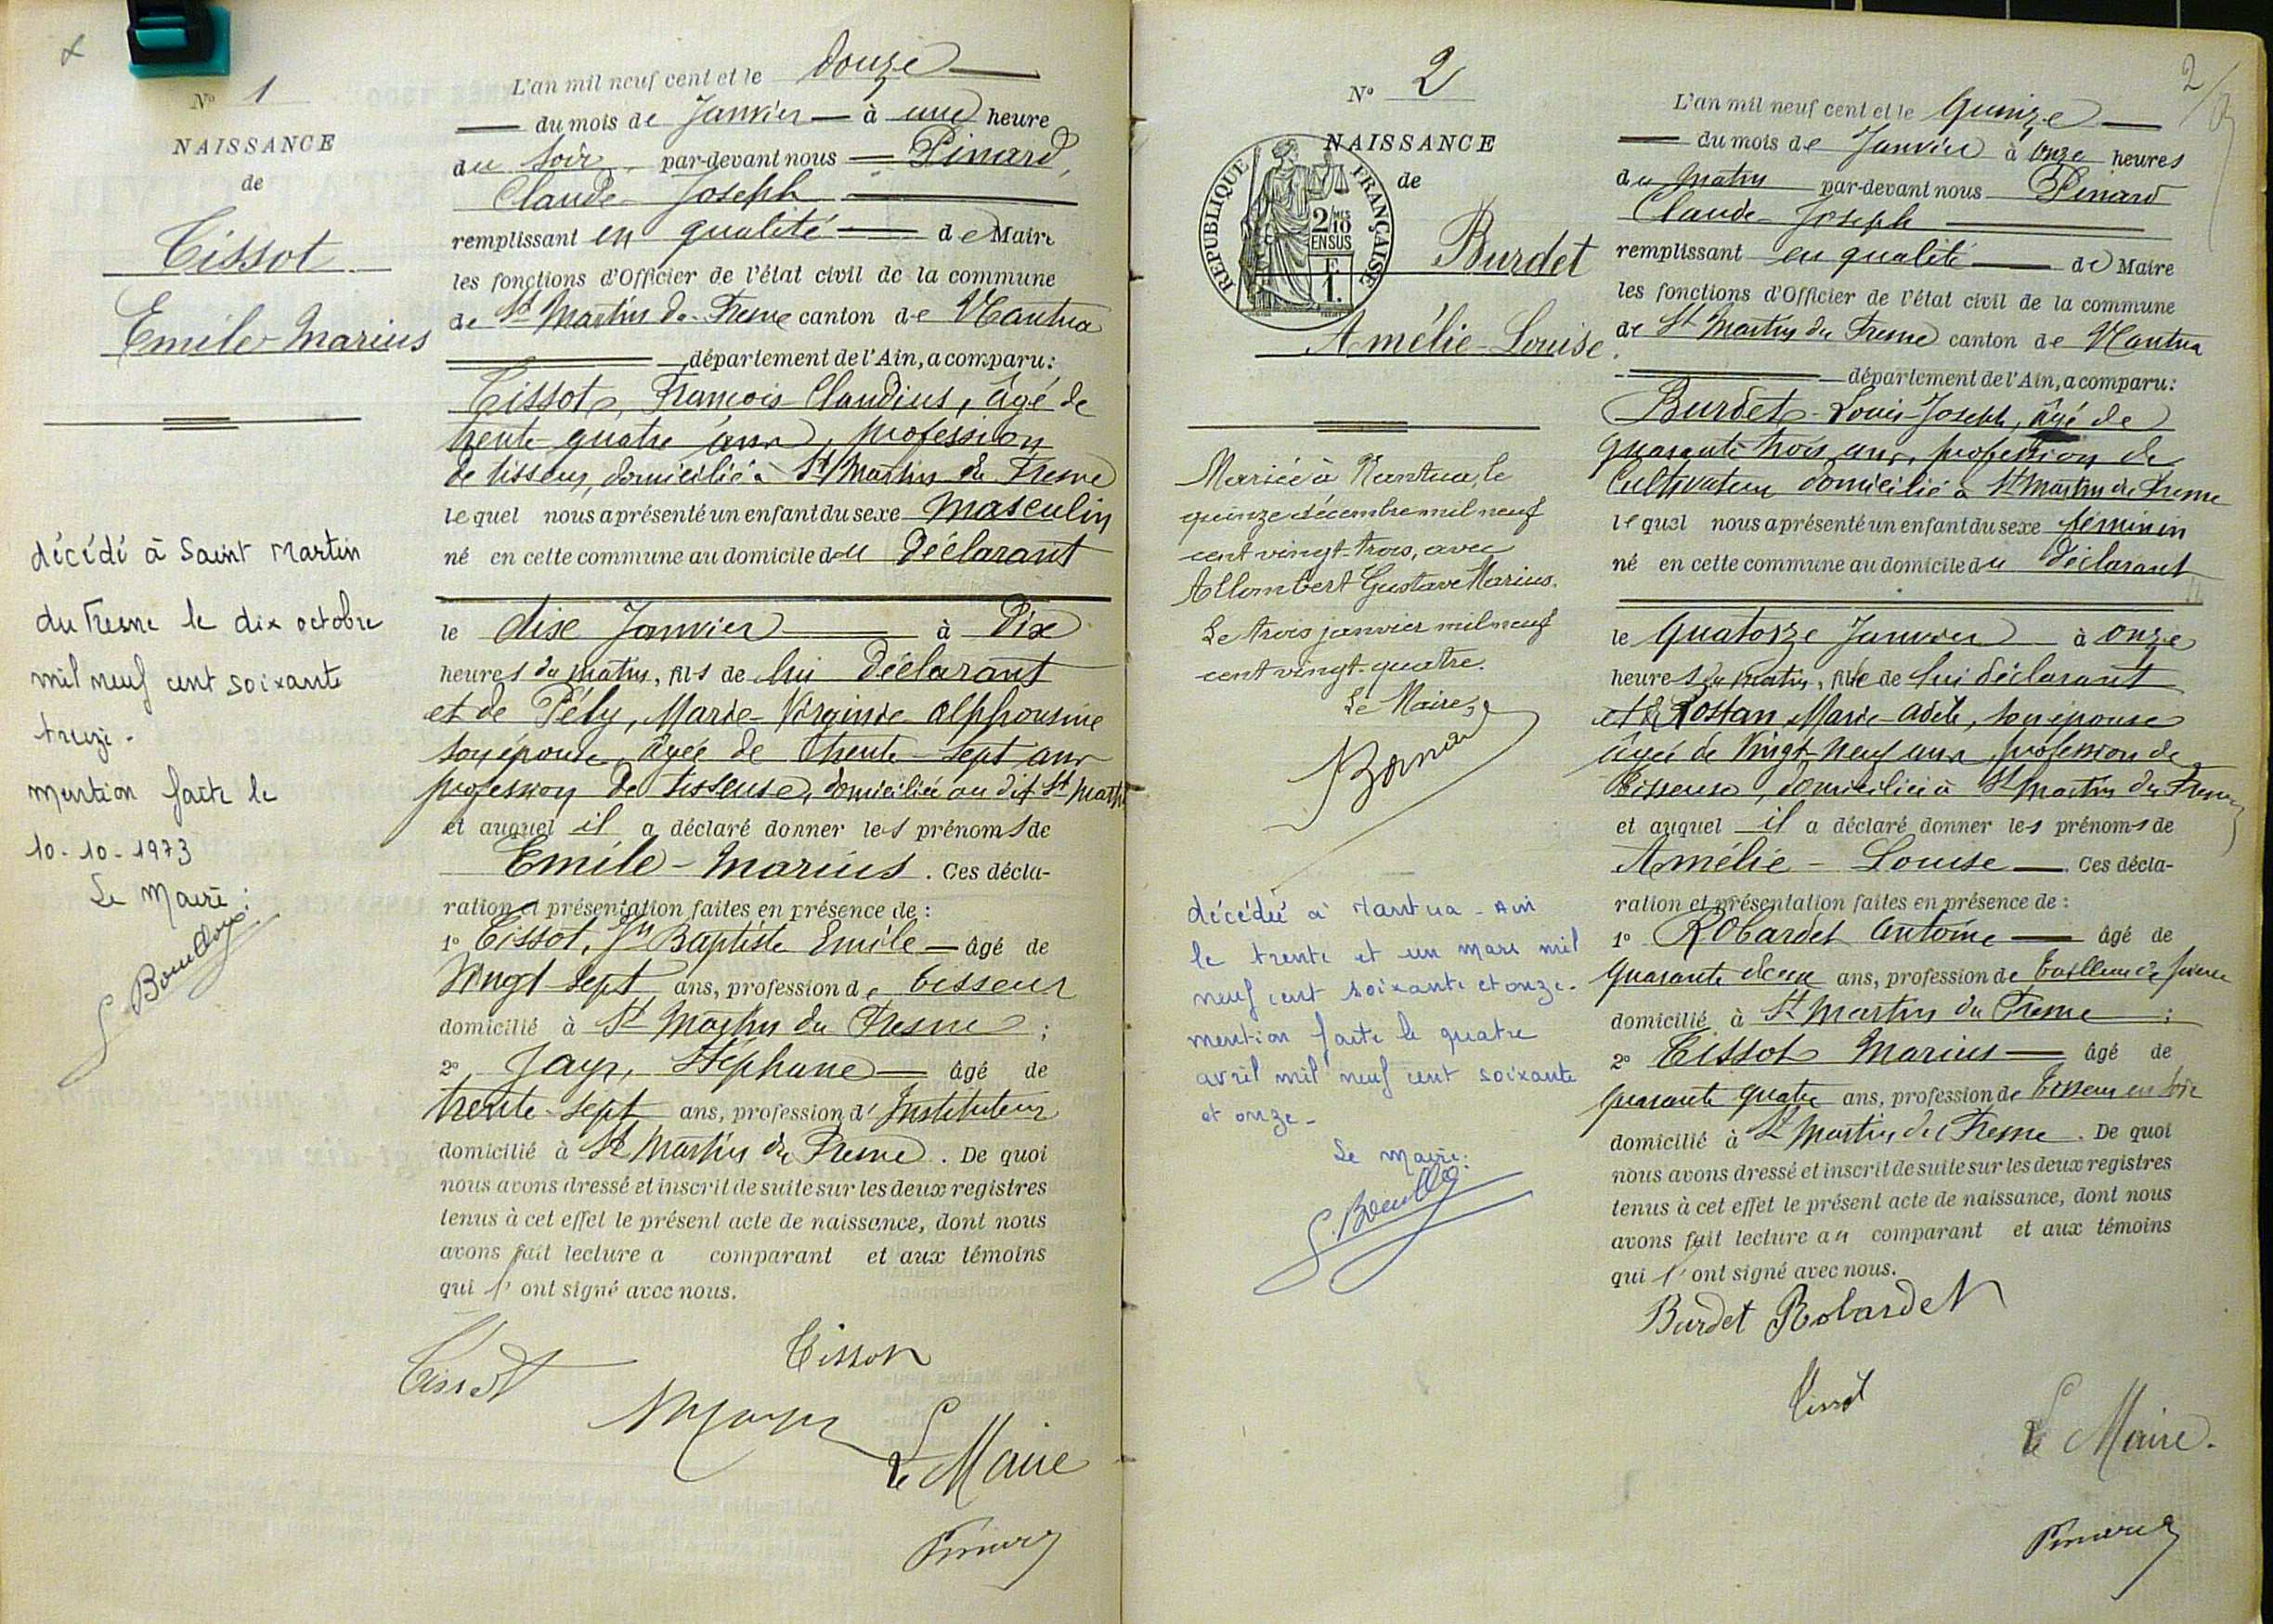 Nº 1
NAISSANCE
de
Tissot
Emile-Marius
décédé à Saint Martin
du Fresne le dix octobre
mil neuf cent soixante
treize.
mention faite le
10-10-1973
Le Maire:
L'an mil neuf cent et le douze
du mois de Janvier à une heure
du soir par-devant nous Pinard,
Claude-Joseph
remplissant en qualité de Maire
les fonctions d'Officier de l'état civil de la commune
de St Martin du Fresne canton de Nantua
département de l'Ain, a comparu:
Tissot, François Claudius, âgé de
trente quatre ans, profession
de tisseur, domicilié à St Martin du Fresne
lequel nous a présenté un enfant du sexe masculin
né en cette commune au domicile du déclarant
le dix Janvier à dix
heures du matin, fils de lui déclarant
et de Pély, Marie-Virginie-Alphonsine
son épouse, âgée de trente-sept ans
profession de tisseuse, domiciliée au dit St Martin
et auquel il a déclaré donner les prénoms de
Emile-Marius. Ces décla-
ration et présentation faites en présence de:
1º Tissot, Jn Baptiste Emile âgé de
vingt-sept ans, profession de tisseur
domicilié à St Martin du Fresne;
2º Jayr, Stéphane âgé de
trente-sept ans, profession d'Instituteur
domicilié à St Martin du Fresne. De quoi
nous avons dressé et inscrit de suite sur les deux registres
tenus à cet effet le présent acte de naissance, dont nous
avons fait lecture a comparant et aux témoins
qui l'ont signé avec nous.
Tissot
Tissot
Le Maire
Pinard
2
Nº 2
NAISSANCE
de
RÉPUBLIQUE FRANÇAISE
2/10 MES
EN SUS
F
1.
Burdet
Amélie-Louise
Mariée à Nantua, le
quinze décembre mil neuf
cent vingt-trois, avec
Allombert Gustave Marius.
Le trois janvier mil neuf
cent vingt-quatre.
Le Maire,
décédée à Nantua-Ain
le trente et un mars mil
neuf cent soixante et onze.
mention faite le quatre
avril mil neuf cent soixante
et onze-
Le Maire:
L'an mil neuf cent et le quinze
du mois de Janvier à onze heures
du matin par-devant nous Pinard
Claude-Joseph
remplissant en qualité de Maire
les fonctions d'Officier de l'état civil de la commune
de St Martin du Fresne canton de Nantua
département de l'Ain, a comparu:
Burdet-Louis-Joseph, âgé de
quarante-trois ans, profession de
Cultivateur domicilié à St Martin du Fresne
lequel nous a présenté un enfant du sexe féminin
né en cette commune au domicile du déclarant
le quatorze Janvier à onze
heures du matin, fille de lui déclarant
et de Rostan Marie-Adèle, son épouse
âgée de vingt-neuf ans profession de
tisseuse, domiciliée à St Martin du Fresne
et auquel il a déclaré donner les prénoms de
Amélie-Louise. Ces décla-
ration et présentation faites en présence de:
1º Robardet Antoine âgé de
quarante deux ans, profession de tailleur de pierre
domicilié à St Martin du Fresne;
2º Tissot Marius âgé de
quarante quatre ans, profession de tisseur en soie
domicilié à St Martin du Fresne. De quoi
nous avons dressé et inscrit de suite sur les deux registres
tenus à cet effet le présent acte de naissance, dont nous
avons fait lecture au comparant et aux témoins
qui l'ont signé avec nous.
Burdet Robardet
Tissot
Le Maire.
Pinard